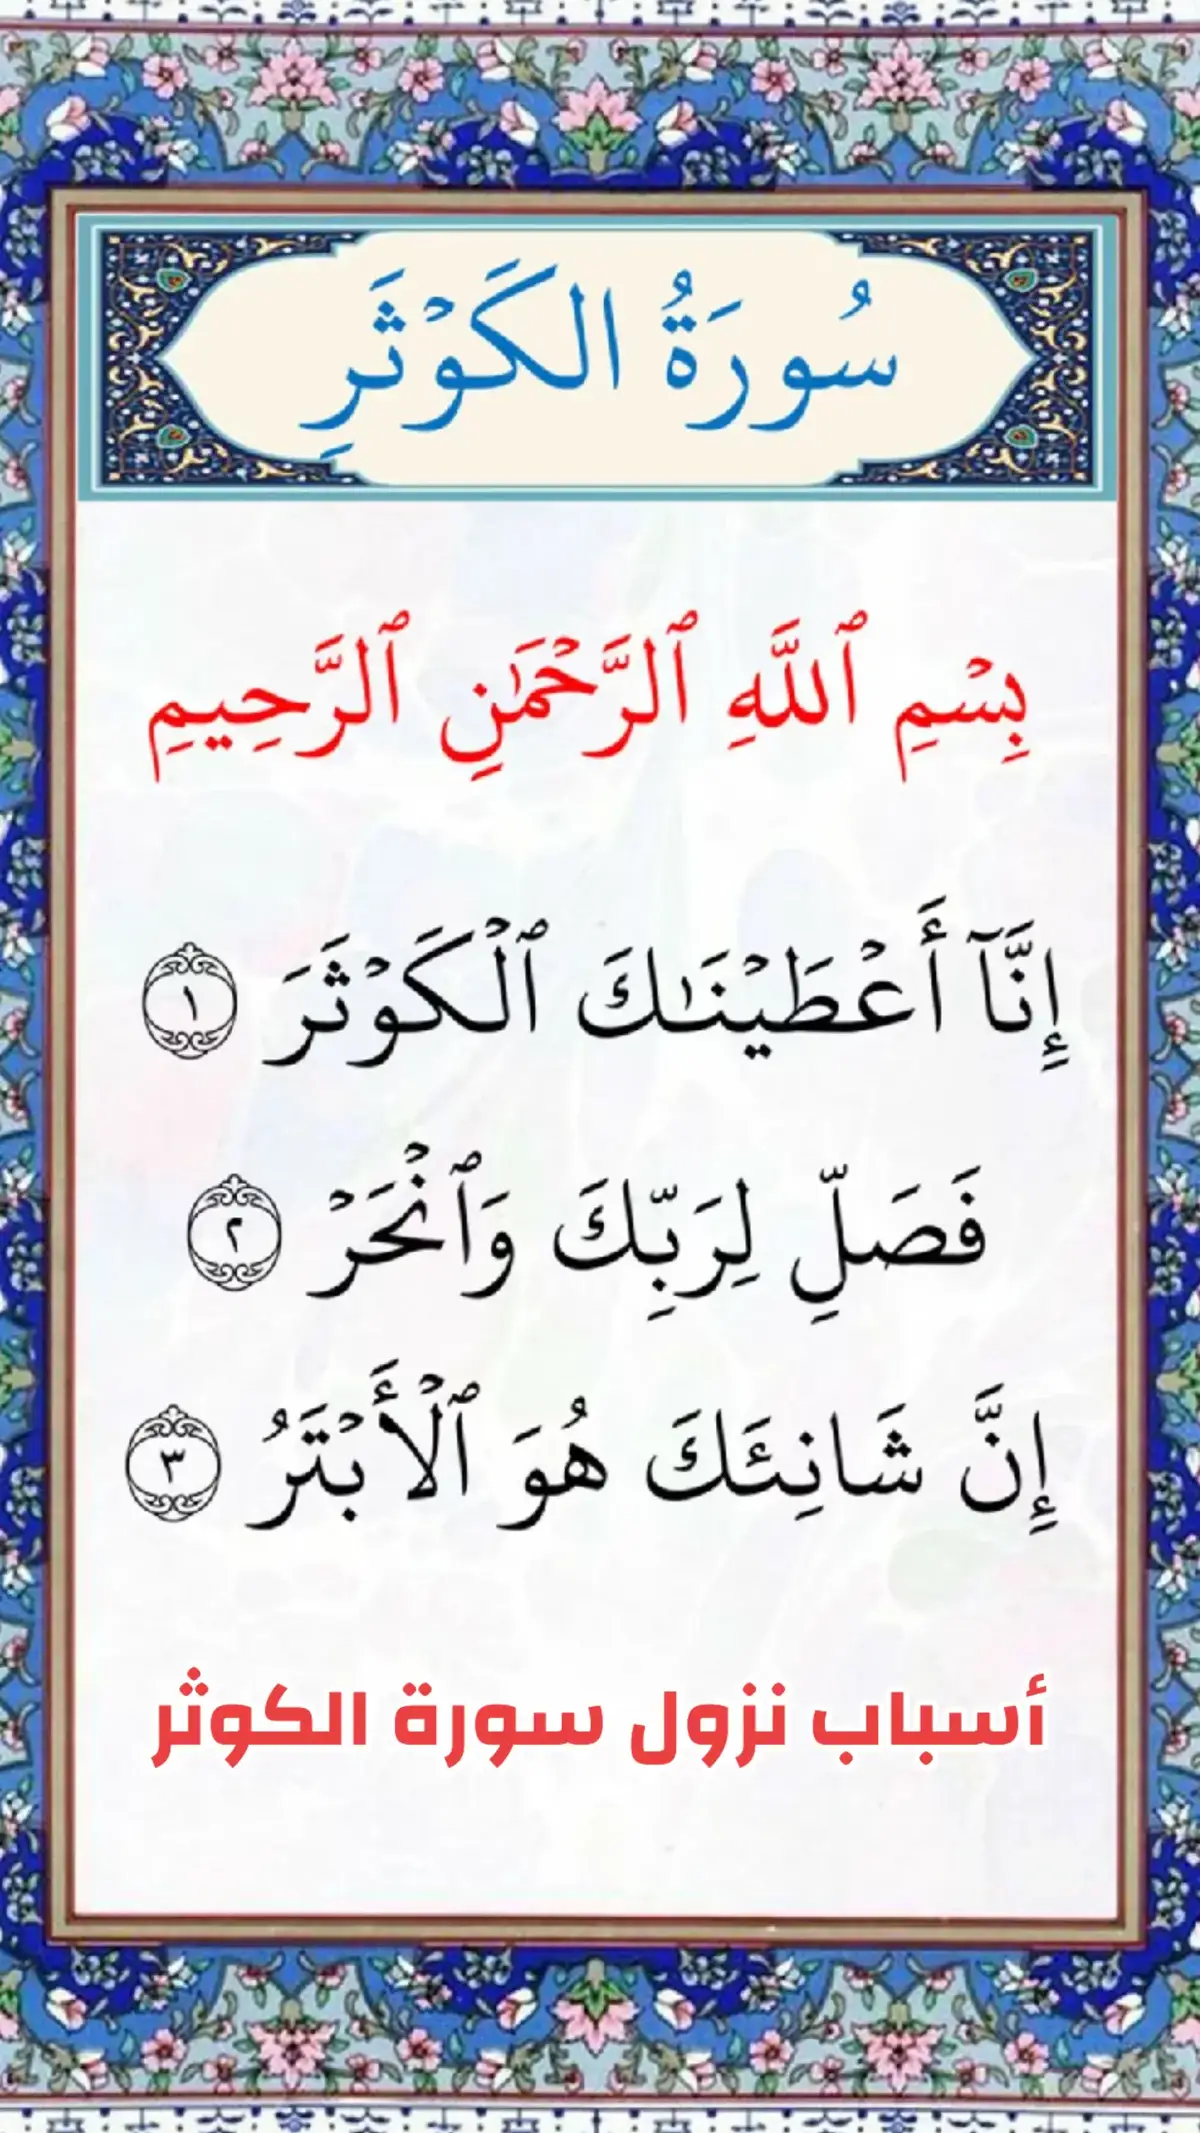 سُورَةُ الكَوۡثَرِ
بِسۡمِ ٱللَّهِ ٱلرَّحۡمَٰنِ ٱلرَّحِيمِ
إِنَّآ أَعۡطَيۡنَٰكَ ٱلۡكَوۡثَرَ ١
فَصَلِّ لِرَبِّكَ وَٱنۡحَرۡ ٢
إِنَّ شَانِئَكَ هُوَ ٱلۡأَبۡتَرُ ٣
أسباب نزول سورة الكوثر